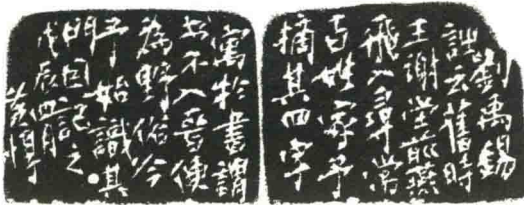 劉禹錫
詩云舊時
王謝堂前燕
飛入尋常
百姓家予
摘其四字
寓於書謂
书不入晉便
為野俗今
予始識其
門因記之
戊辰四月
黃惇